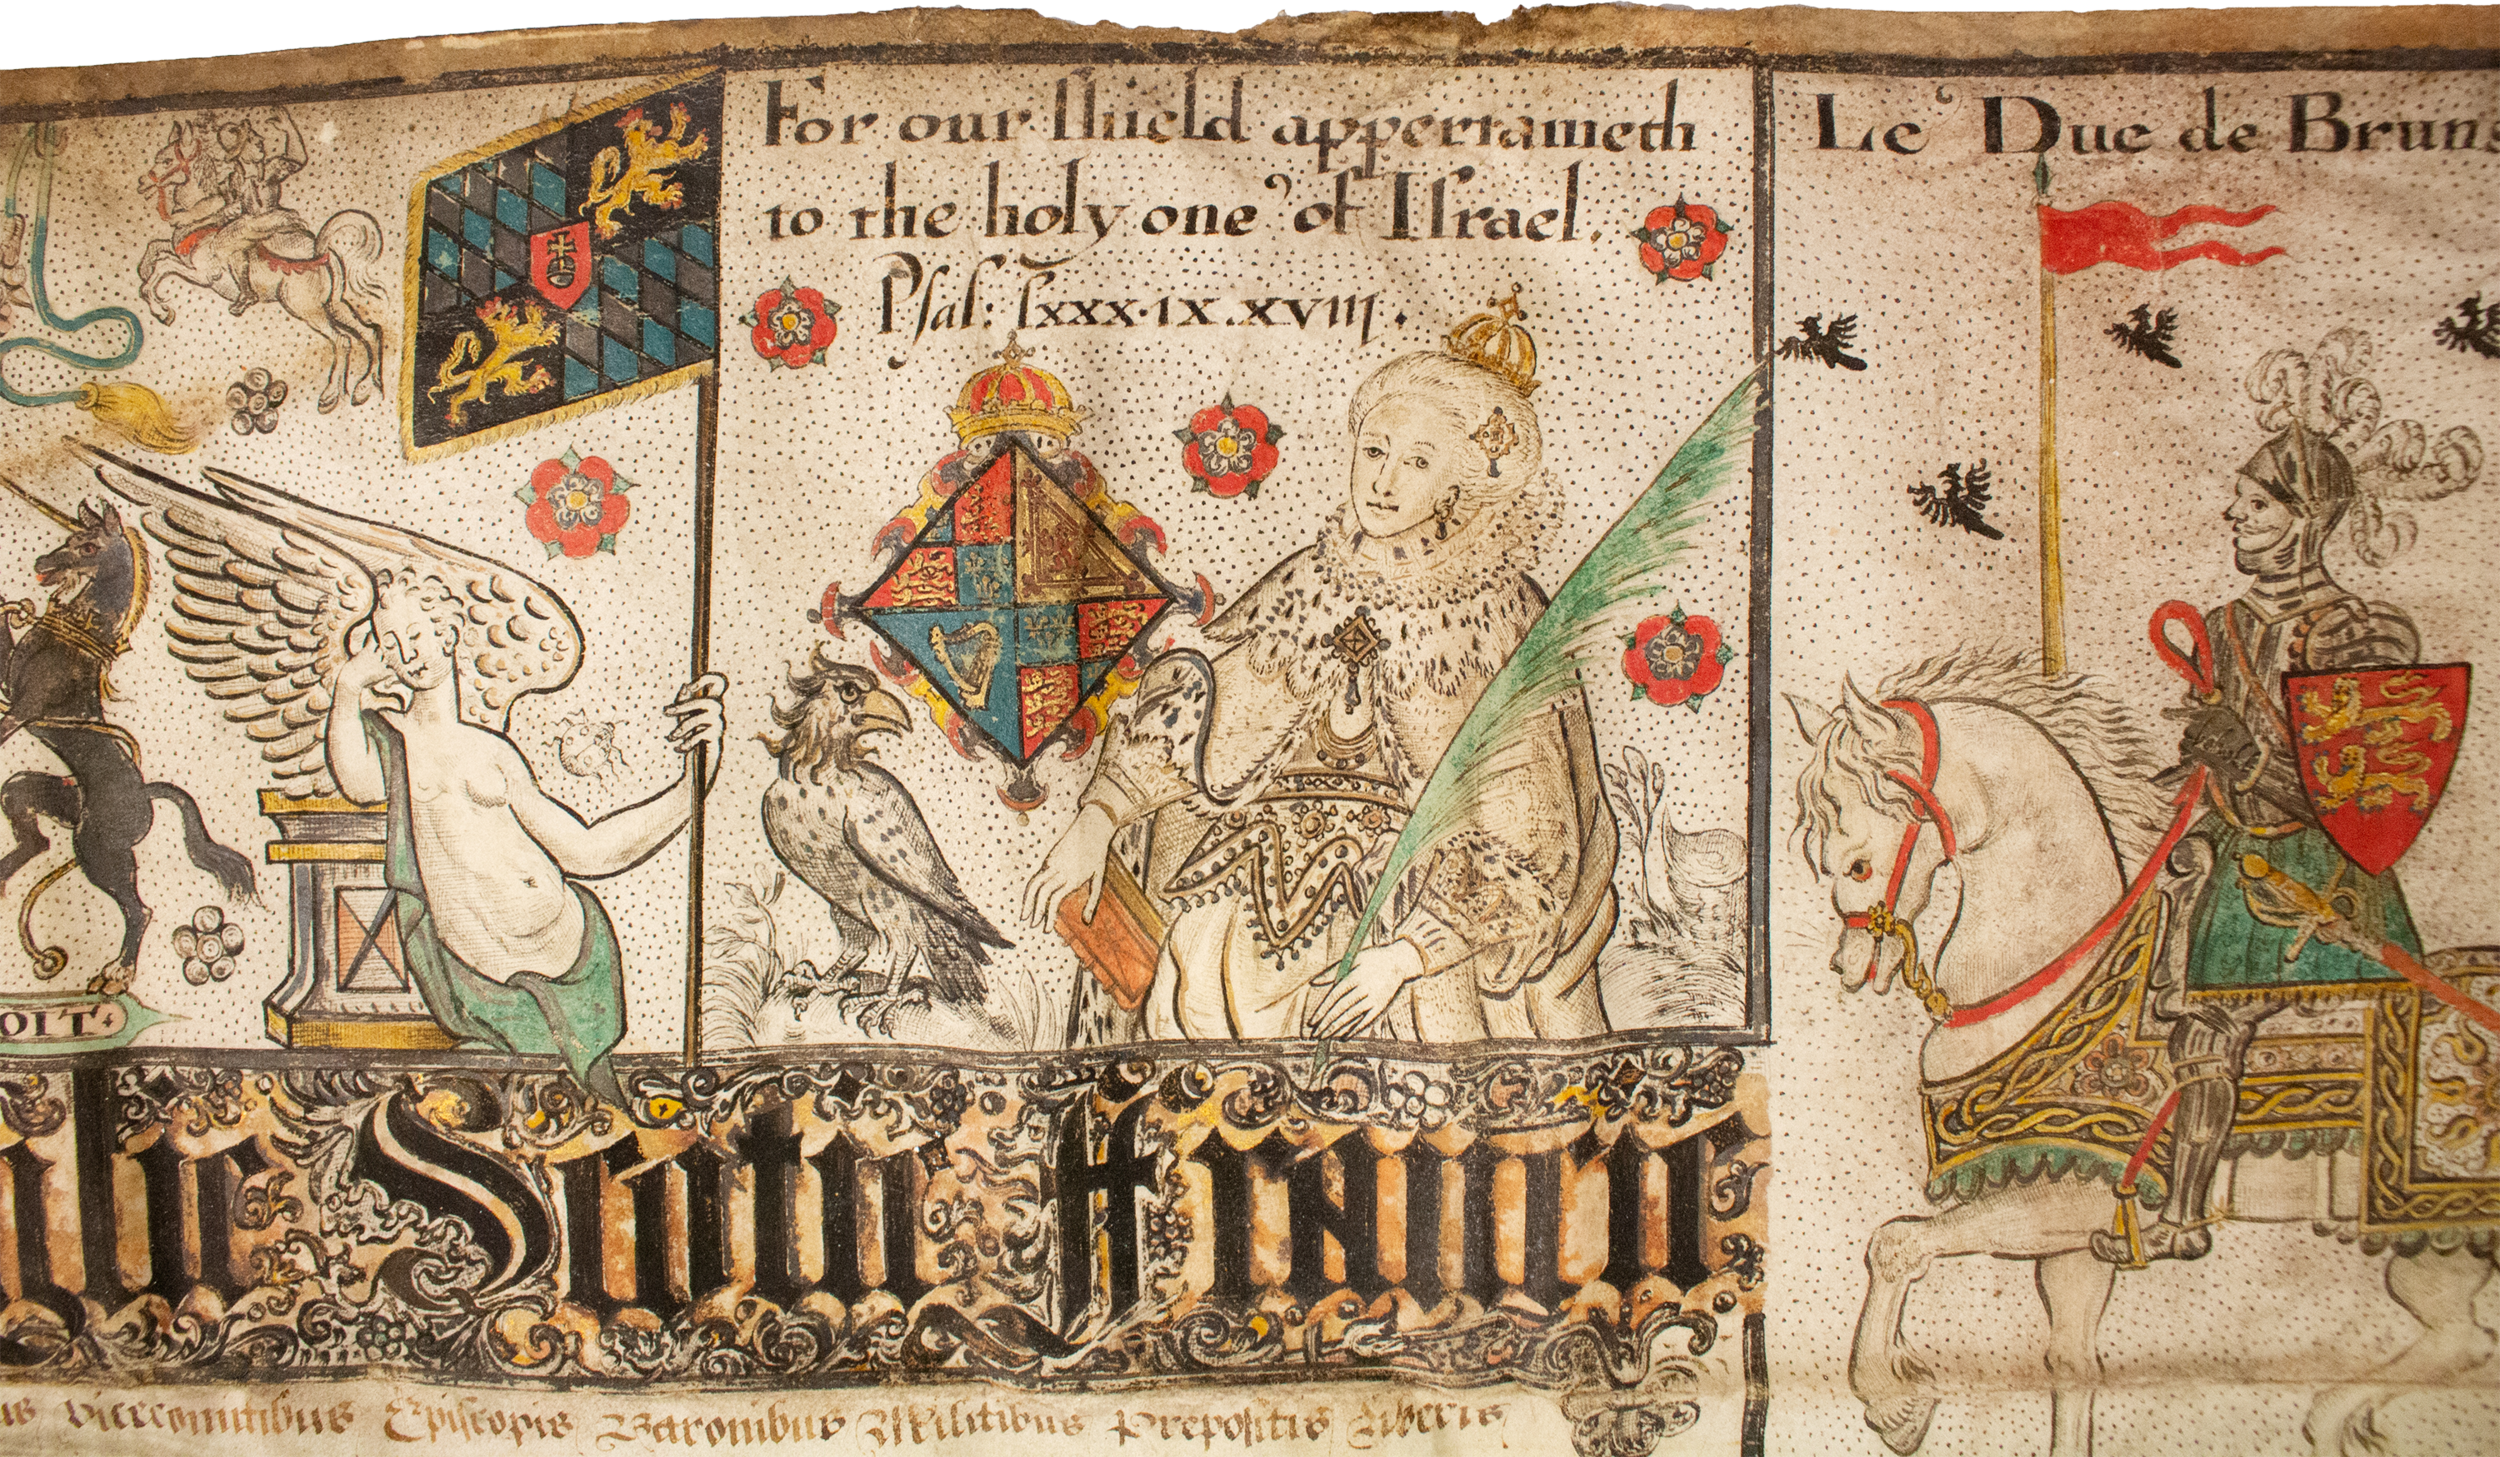 For our shield appertaineth
to the holy one of Israel.
Psal: lxxx.ix.xviii.
Le Duc de Bruns
OIT
Scotie Franc
vicecomitibus Episcopis Baronibus Militibus Prepositis Liberis